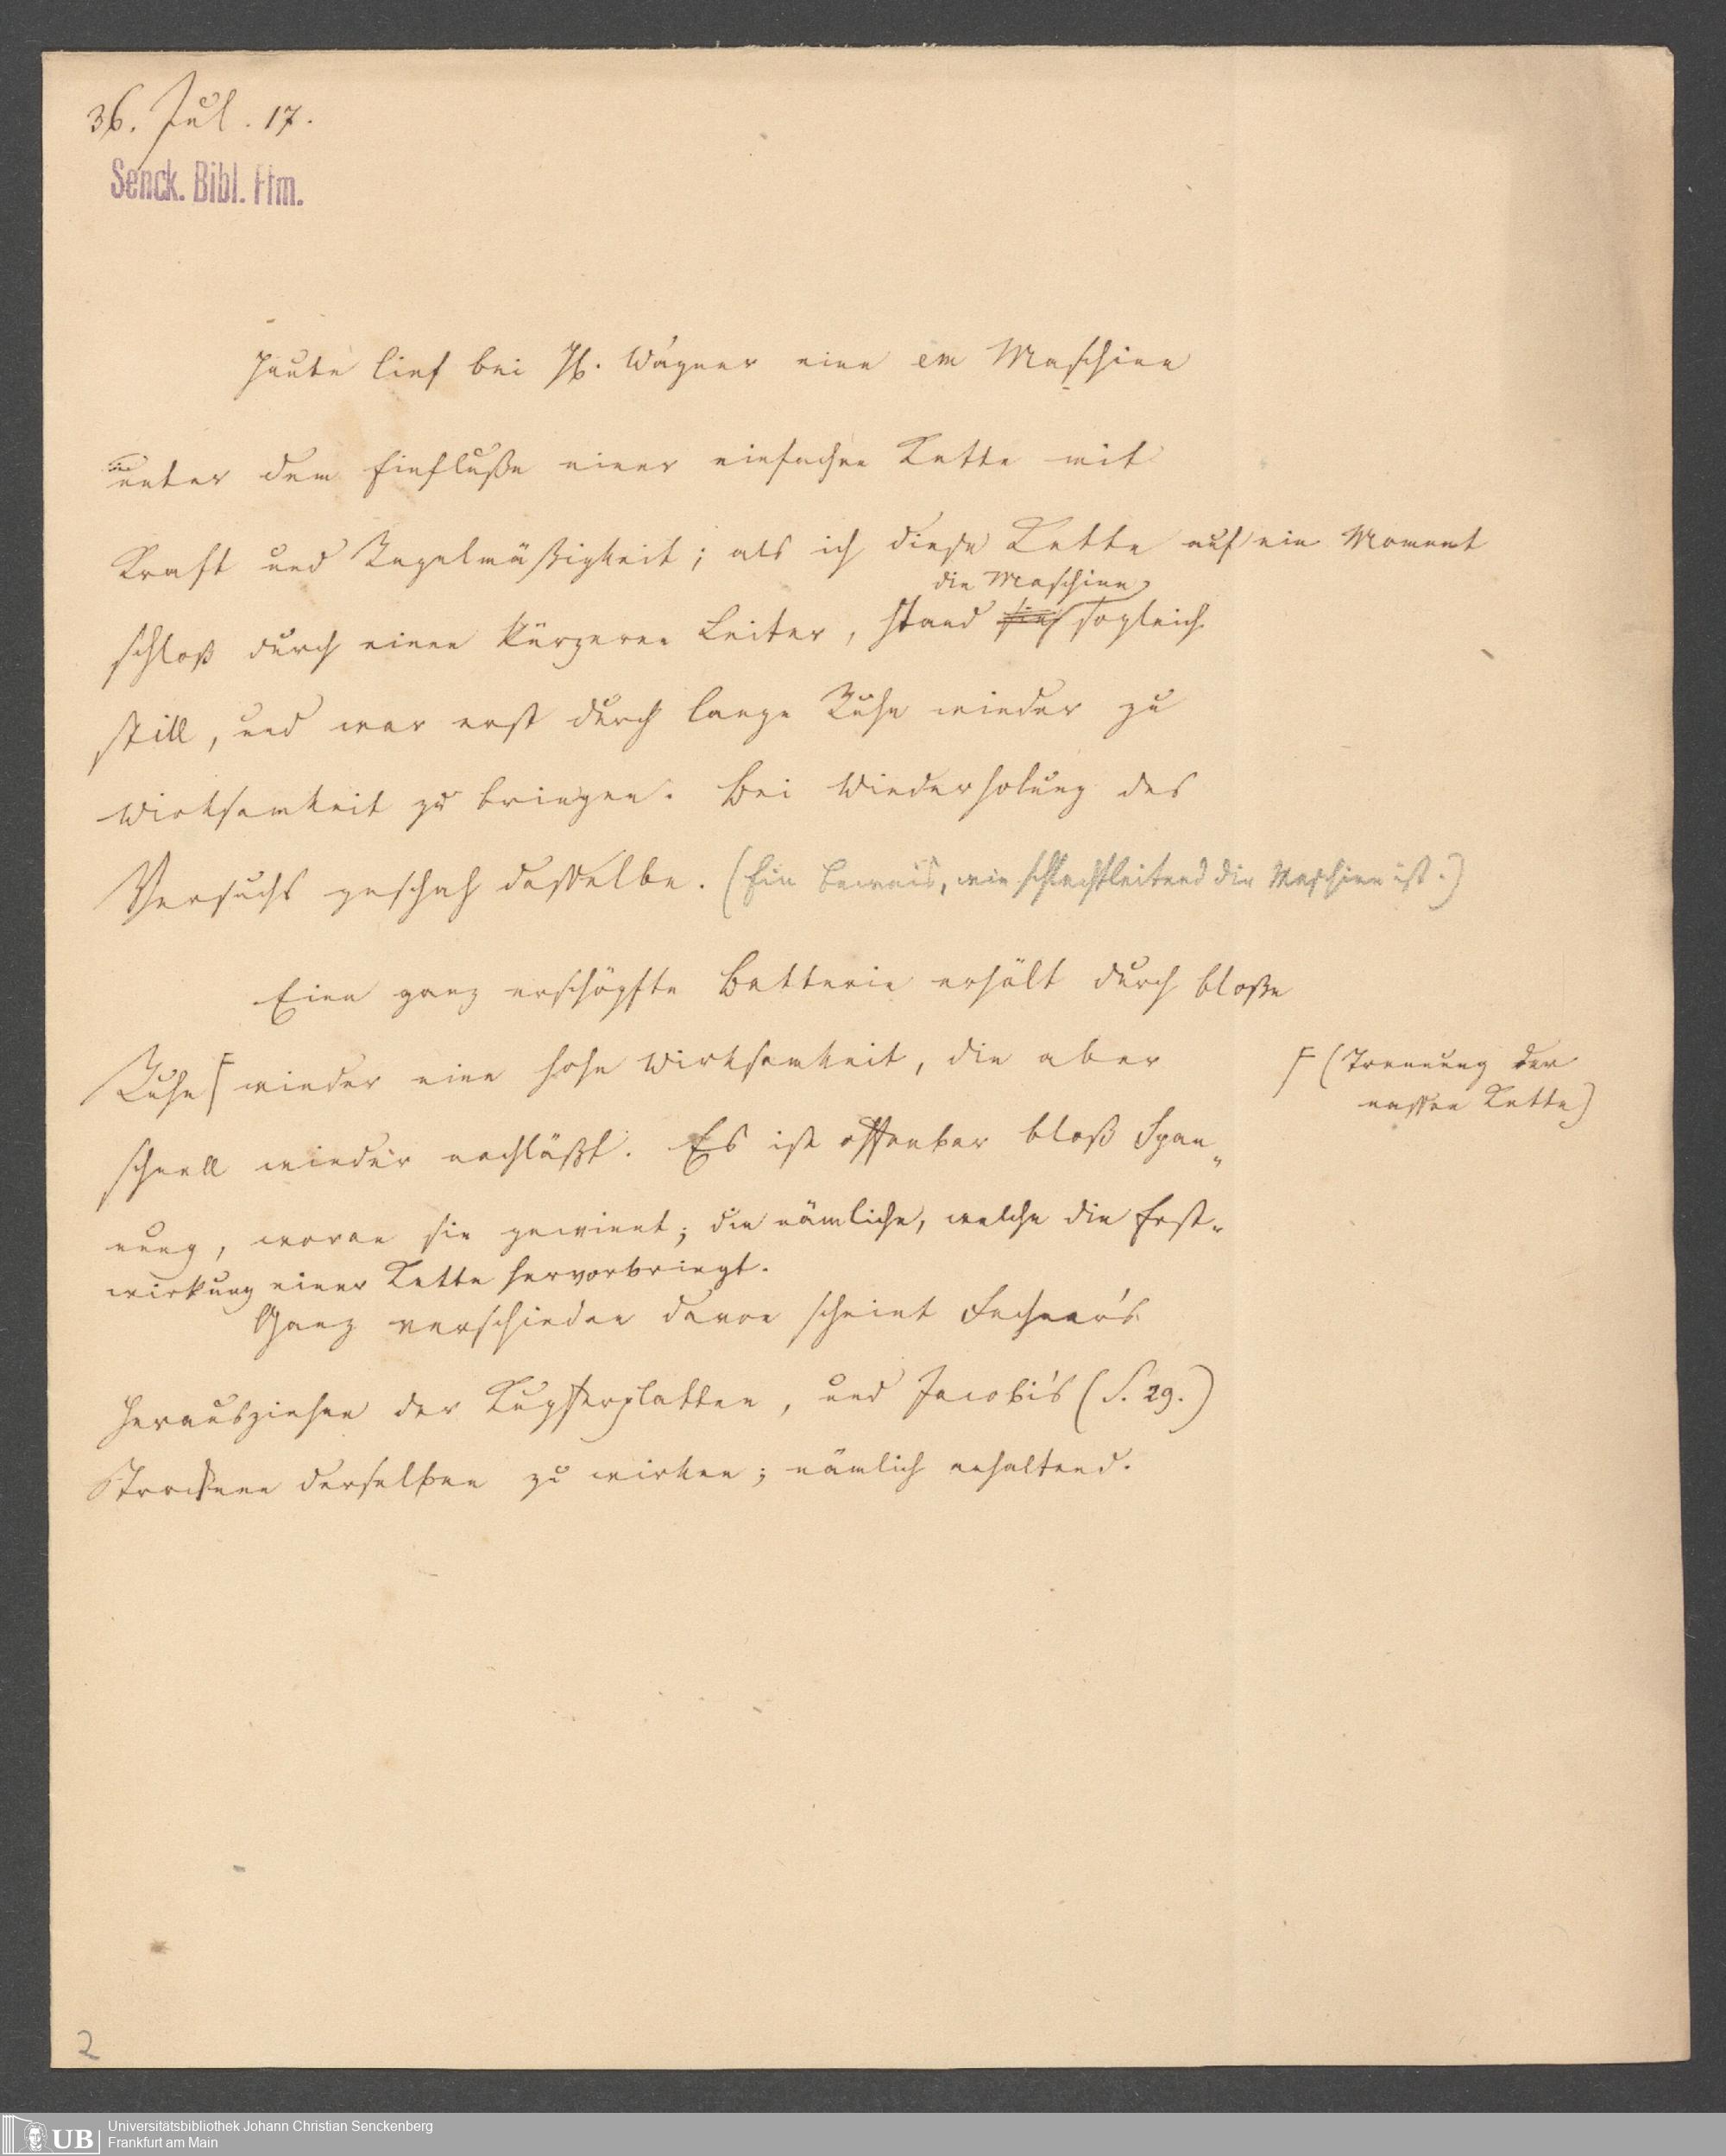 36. Jul. 17.
Senck. Bibl. Ffm.
Heute lief bei Ph. Wagner eine em Maschine
unter dem Einfluße einer einfachen Kette mit
Kraft und Regelmäßigkeit; als ich diese Kette auf ein Moment
die Maschine
schloß durch einen kürzeren Leiter, stand sie sogleich
still, und war erst durch lange Ruhe wieder zu
Wirksamkeit zu bringen. Bei Wiederholung des
Versuchs geschah dasselbe. (Ein Beweis, wie schlechtleitend die Maschine ist.)
Eine ganz erschöpfte Batterie erhält durch bloße
Ruhe wieder eine hohe Wirksamkeit, die aber
(Trennung der
nassen Kette)
schnell wieder nachläßt. Es ist offenbar bloß Span-
nung, woran sie gewinnt; die nämliche, welche die Erst-
wirkung einer Kette hervorbringt.
Ganz verschieden davon scheint Fechner's
Herausziehen der Kupferplatten, und Jacobi's (S. 29.)
Trocknen derselben zu wirken; nämlich anhaltend.
2
UB
Universitätsbibliothek Johann Christian Senckenberg
Frankfurt am Main